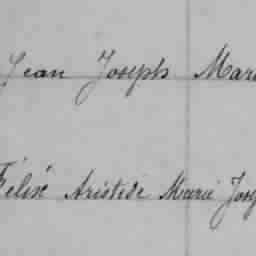 Jean Joseph Mari
Félix Aristide Marie Jose